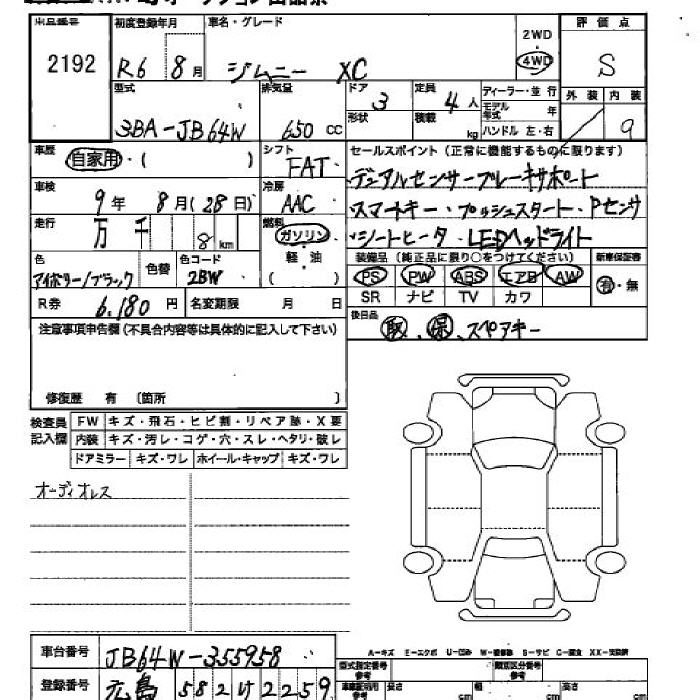 出品番号 初度登録年月 車名・グレード 2WD 評価点
2192 R6 8月 ジムニー XC 4WD S
型式 排気量 ドア 定員 ディーラー・並行 外装 内装
3BA-JB64W 650 cc 3 4人 モデル年式 年 9
形状 積載 kg ハンドル 左・右
車歴 シフト セールスポイント(正常に機能するものに限ります)
自家用・( ) FAT
デュアルセンサーブレーキサポート
車検 冷房
9年 8月(28日) AAC スマートキー・プッシュスタート・Pセンサ
走行 燃料
万 千 8 km ガソリン ・シートヒータ・LEDヘッドライト
色 色替 色コード 軽・油 装備品(純正品に限り○をつけてください) 新車保証書
アイボリー/ブラック 2BW ( ) PS PW ABS エアB AW 有・無
SR ナビ TV カワ
R券 6,180円 名変期限 月 日
後日品
取・保・スペアキー
注意事項申告欄(不具合内容等は具体的に記入して下さい)
修復歴 有 〔箇所 〕
検査員 FW キズ・飛石・ヒビ割・リペア跡・X要
記入欄 内装 キズ・汚レ・コゲ・穴・スレ・ヘタリ・破レ
ドアミラー キズ・ワレ ホイール・キャップ キズ・ワレ
オーディオレス
車台番号 JB64W-355958
A-キズ E-エクボ U-凹み W-補修跡 S-サビ C-腐食 XX-交換済
登録番号 広島 582 け 2259
型式指定番号 参考 類別区分番号 参考
長さ cm 幅 cm 高さ cm